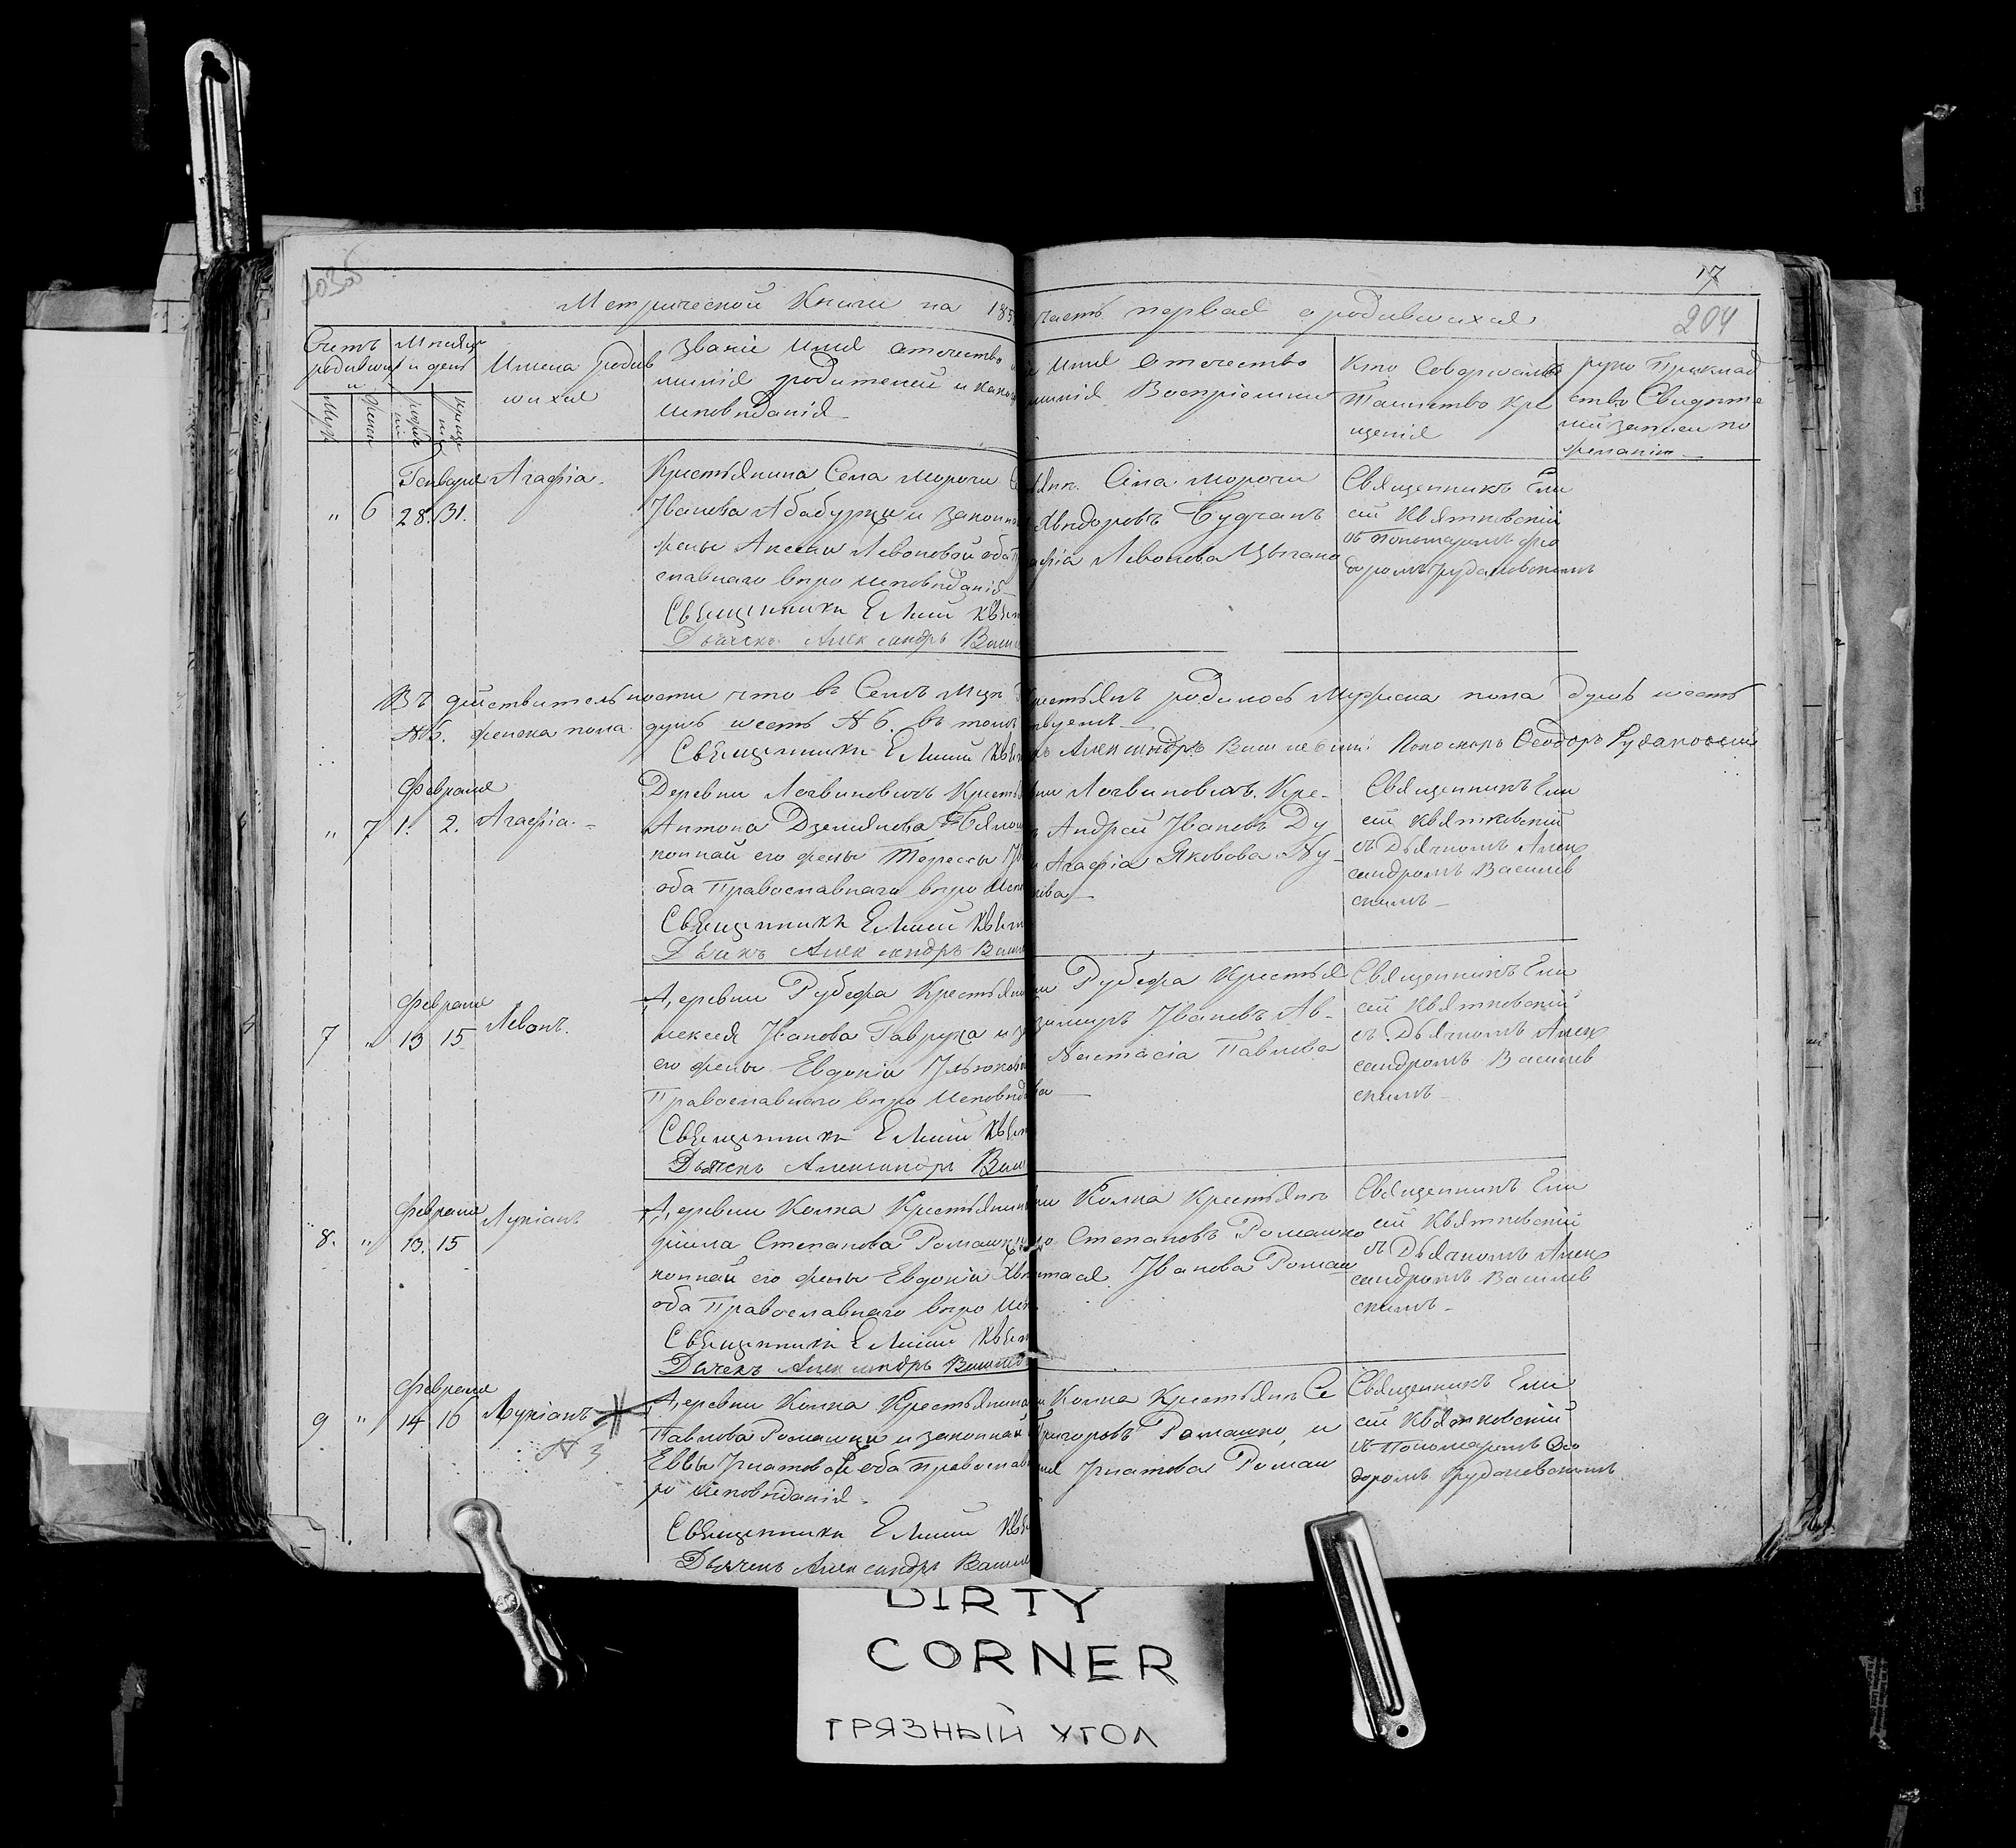 17
204
Метрической Книги на 185
часть первая о родившихся
Счетъ родивших
Мѣсяцъ и день
Имена родив
шихся
Званіе имя отчество
милія родителей и какого
исповѣданія
имя отчество
милія Воспріемник
Кто Совершалъ
Таинство Кре
щенія
руко Приклад
ство Свидѣте
лей записи по
желанію
Муж
Женск
Генваря
Агафіа
" 6 28. 31.
Крестьянина Села Морочи
Иванова Абабурки и законн
жены Аксеніи Левоновой оба П
славнаго вѣро исповѣданія
Священникъ Елисѣй Квят
Дьячекъ Александръ Васил
Села Морочи
Явдоровъ Будчанъ
Левонова Цыгано
Священникъ Ели
сѣй Квятковскій
съ Пономаремъ Фео
доромъ Рудаковскимъ
Въ дѣйствительности что въ Семъ Мѣся
крестьянъ родилось Мужеска пола душъ шесть
№6. женска пола душъ шесть №6. въ томъ
Священникъ Елисѣй Квят
Александръ Пономарь Ѳеодоръ Рудаковскій
Февраля
" 7 1. 2. Агафіа.
Деревни Логвиновичъ Кресть
Антона
конной его жены Терессы
оба Православнаго вѣро Исп
Священникъ Елисѣй Квят
Дьячекъ Александръ Васил
Логвиновичъ Кре-
Андрей Ивановъ Ду
Агафіа Яковова Ду-
Священникъ Ели
сѣй Квятковскій
съ Дьячкомъ Алек
сандромъ Василев
скимъ
Февраля
7 " 13 15 Левонъ.
Деревни Рубежа Крестьян
лексея Иванова Гаврука и за
его жены Евдокіи
Православнаго вѣро Исповѣд
Священникъ Елисѣй Квят
Дьячекъ Александръ Васил
Рубежа Крестья
Ивановъ Ав-
Настасіа Павлова
Священникъ Ели
сѣй Квятковскій
съ Дьячкомъ Алек
сандромъ Василев
скимъ
Февраля
8. " 13. 15 Лукіанъ
Деревни Колка Крестьянин
Степанова Ромашки
конной его жены Евдокіи
оба Православнаго вѣро Исп
Священникъ Елисѣй Квят
Дьячекъ Александръ
Колка Крестьянъ
Степановъ Ромашко
Иванова Ромаш
Священникъ Ели
сѣй Квятковскій
съ Дьячкомъ Алек
сандромъ Василев
скимъ
Февраля
9 " 14 16 Лукіанъ
№ 3
Деревни Колка Крестьянина
Павлова Ромашки и законной
Еввы Игнатовой оба православ
ро исповѣданія
Священникъ Елисѣй Кв
Дьячекъ Александръ Васил
Колка Крестьянъ Се
Григоровъ Ромашко и
Игнатова Ромаш
Священникъ Ели
сѣй Квятковскій
съ Пономаремъ Ѳео
доромъ Рудаковскимъ
DIRTY
CORNER
ГРЯЗНЫЙ УГОЛ